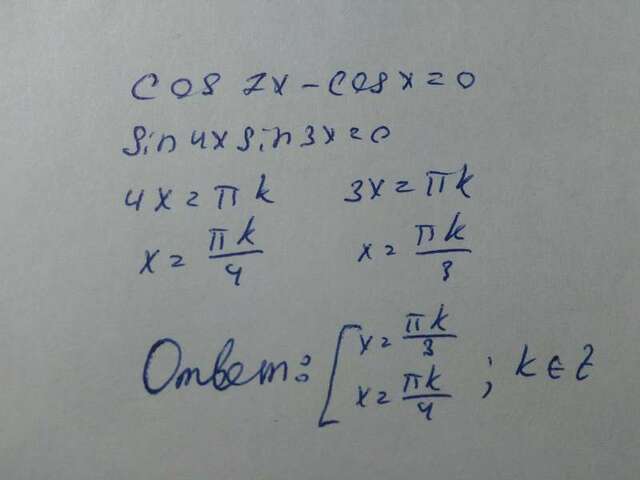 cos 7x - cos x = 0
sin 4x sin 3x = 0
4x = πk 3x = πk
x = πk/4 x = πk/3
Ответ: [ x = πk/3
x = πk/4 ; k ∈ Z